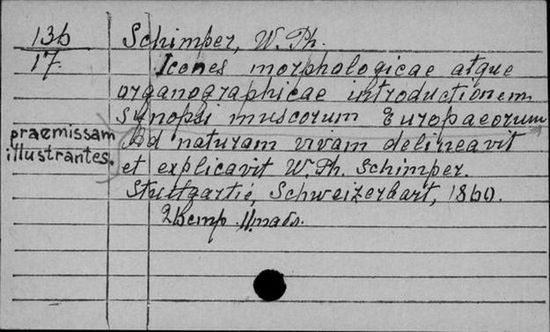 13b
17.
Schimper, W. Ph.
Icones morphologicae atque
organographicae introductionem
synopsi muscorum Europaeorum
praemissam
illustrantes.
Ad naturam vivam delineavit
et explicavit W. Ph. Schimper.
Stuttgartić, Schweizerbart, 1860.